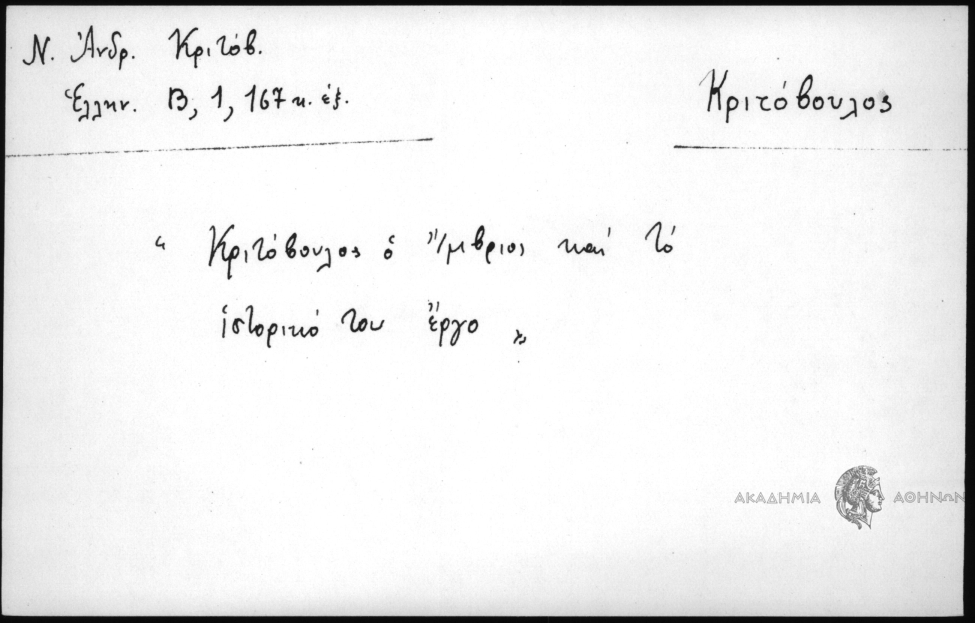 Ν. Ἀνδρ. Κριτόβ.
Ἑλλην. Β, 1, 167 κ. ἑξ.
Κριτόβουλος
“ Κριτόβουλος ὁ Ἴμβριος καί τό
ἱστορικό του ἔργο „
ΑΚΑΔΗΜΙΑ ΑΘΗΝΩΝ